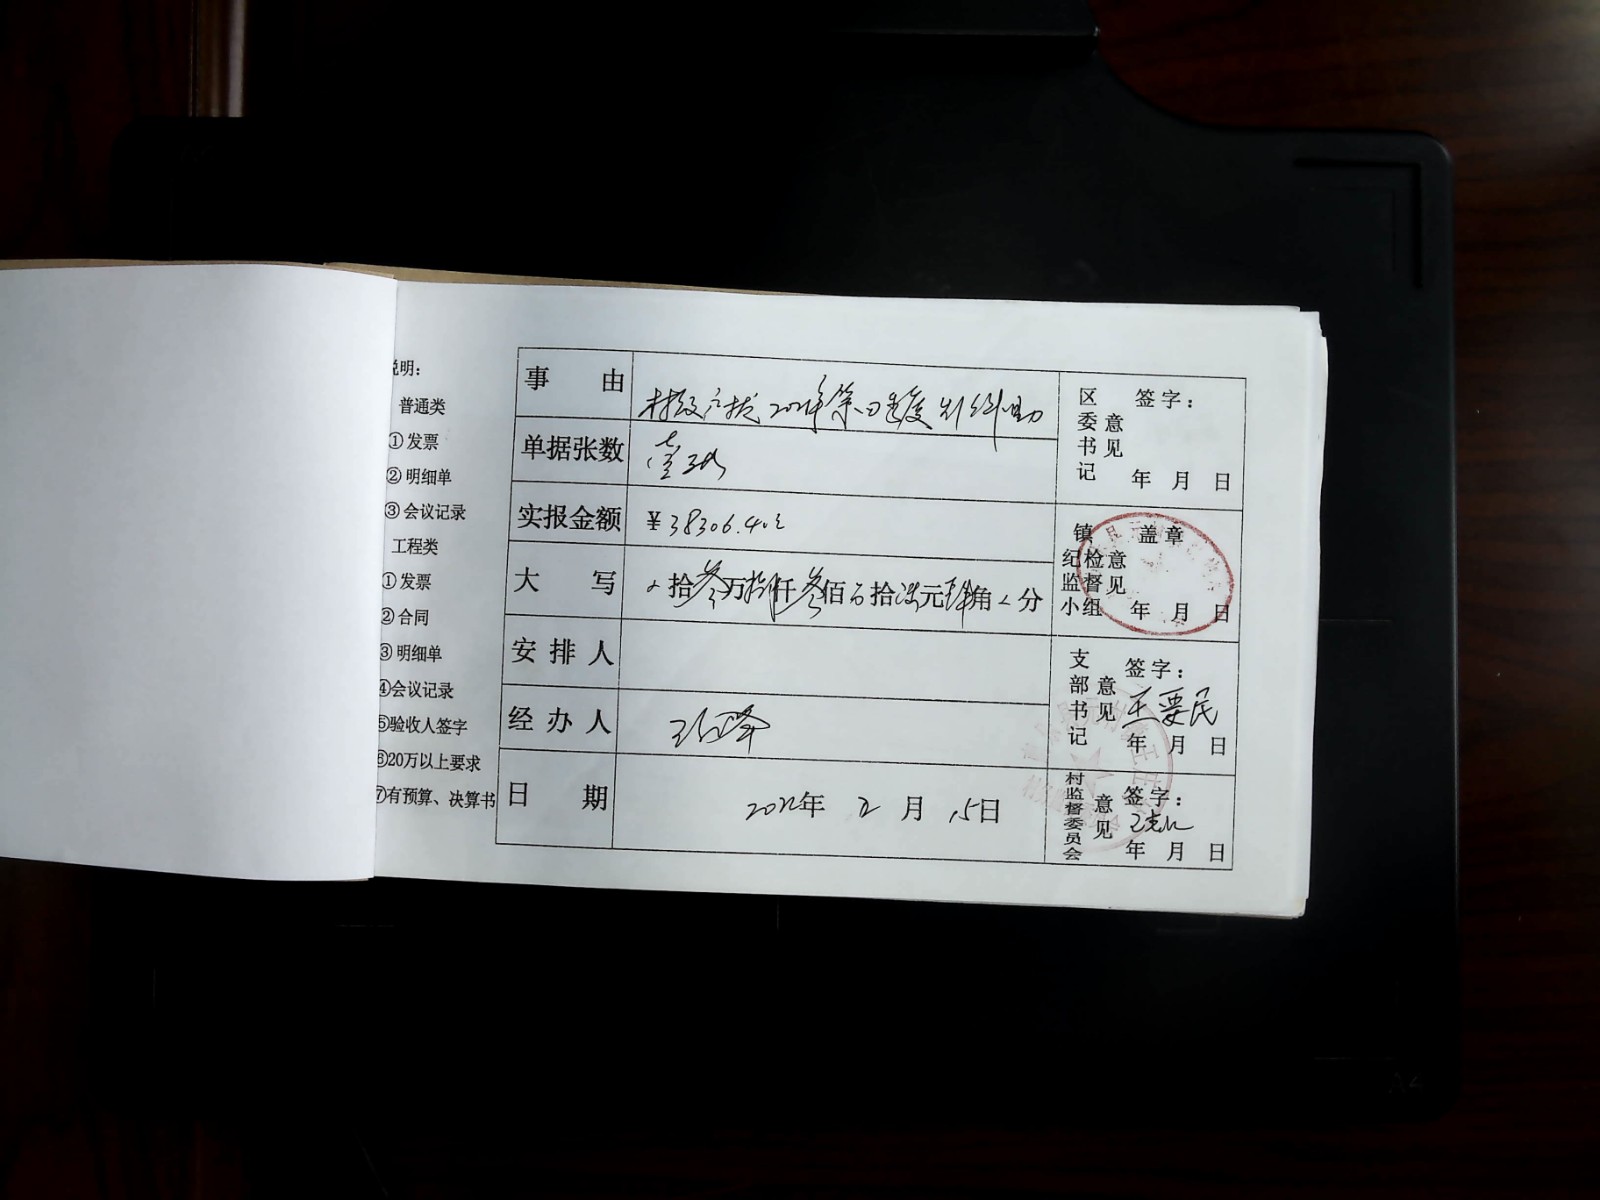 说明:
普通类
①发票
②明细单
③会议记录
工程类
①发票
②合同
③明细单
④会议记录
⑤验收人签字
⑥20万以上要求
⑦有预算、决算书
事 由
年第四季度
单据张数 壹张
实报金额 ¥38306.40元
大 写 拾叁万捌仟叁佰 拾陆元肆角 分
安排人
经办人
日 期 年 月 15日
区委书记意见 签字:
年 月 日
镇纪检监督小组意见 盖章
年 月 日
支部书记意见 签字:
王要民
年 月 日
村监督委员会意见 签字:
年 月 日